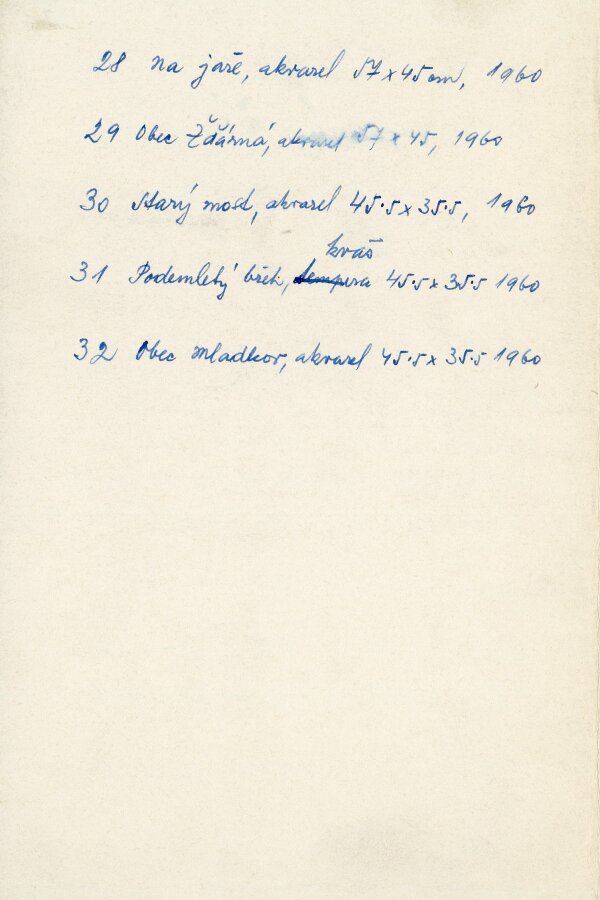 28 Na jaře, akvarel 57 x 45 cm, 1960
29 Obec Žďárná, akvarel 57 x 45, 1960
30 Starý most, akvarel 45·5 x 35·5, 1960
kvaš
31 Podemletý břeh, tempera 45·5 x 35·5 1960
32 Obec Mladkov, akvarel 45·5 x 35·5 1960